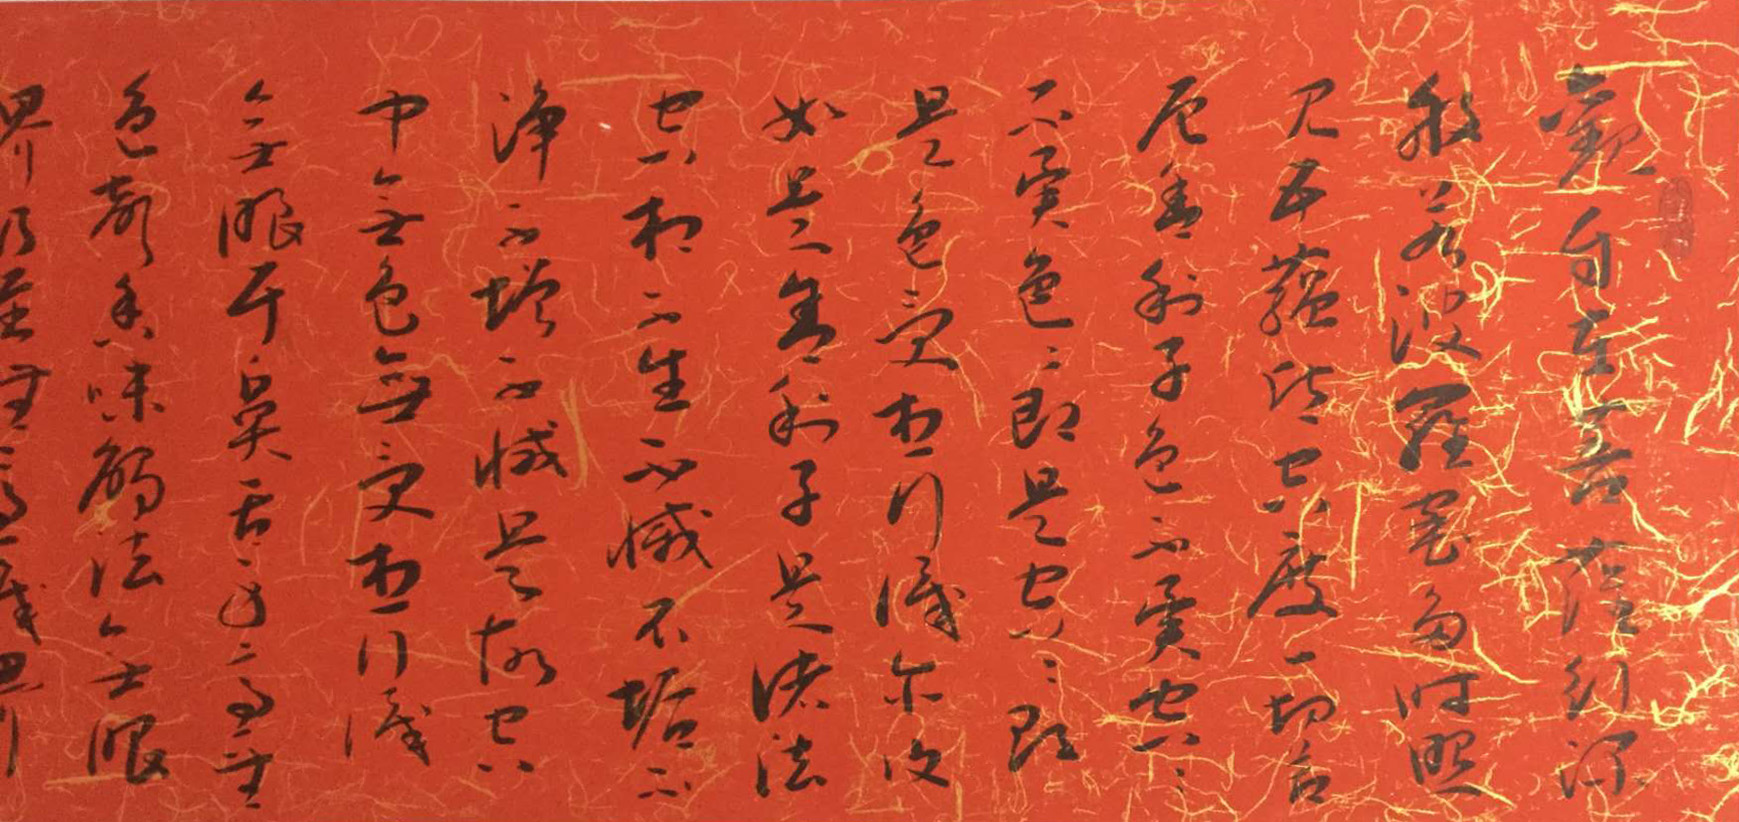 觀自在菩薩行深
般若波羅蜜多时照
見五蘊皆空度一切苦
厄舍利子色不異空〻
不異色〻即是空〻即
是色受想行識亦復
如是舍利子是諸法
空相不生不滅不垢不
淨不增不減是故空
中無色無受想行識
無眼耳鼻舌身意無
色聲香味觸法無眼
界乃至無意識界